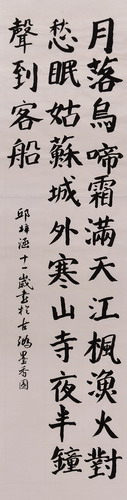 月落烏啼霜滿天江楓漁火對
愁眠姑蘇城外寒山寺夜半鐘
聲到客船
邱梓涵十一歲書於古鴻墨香園